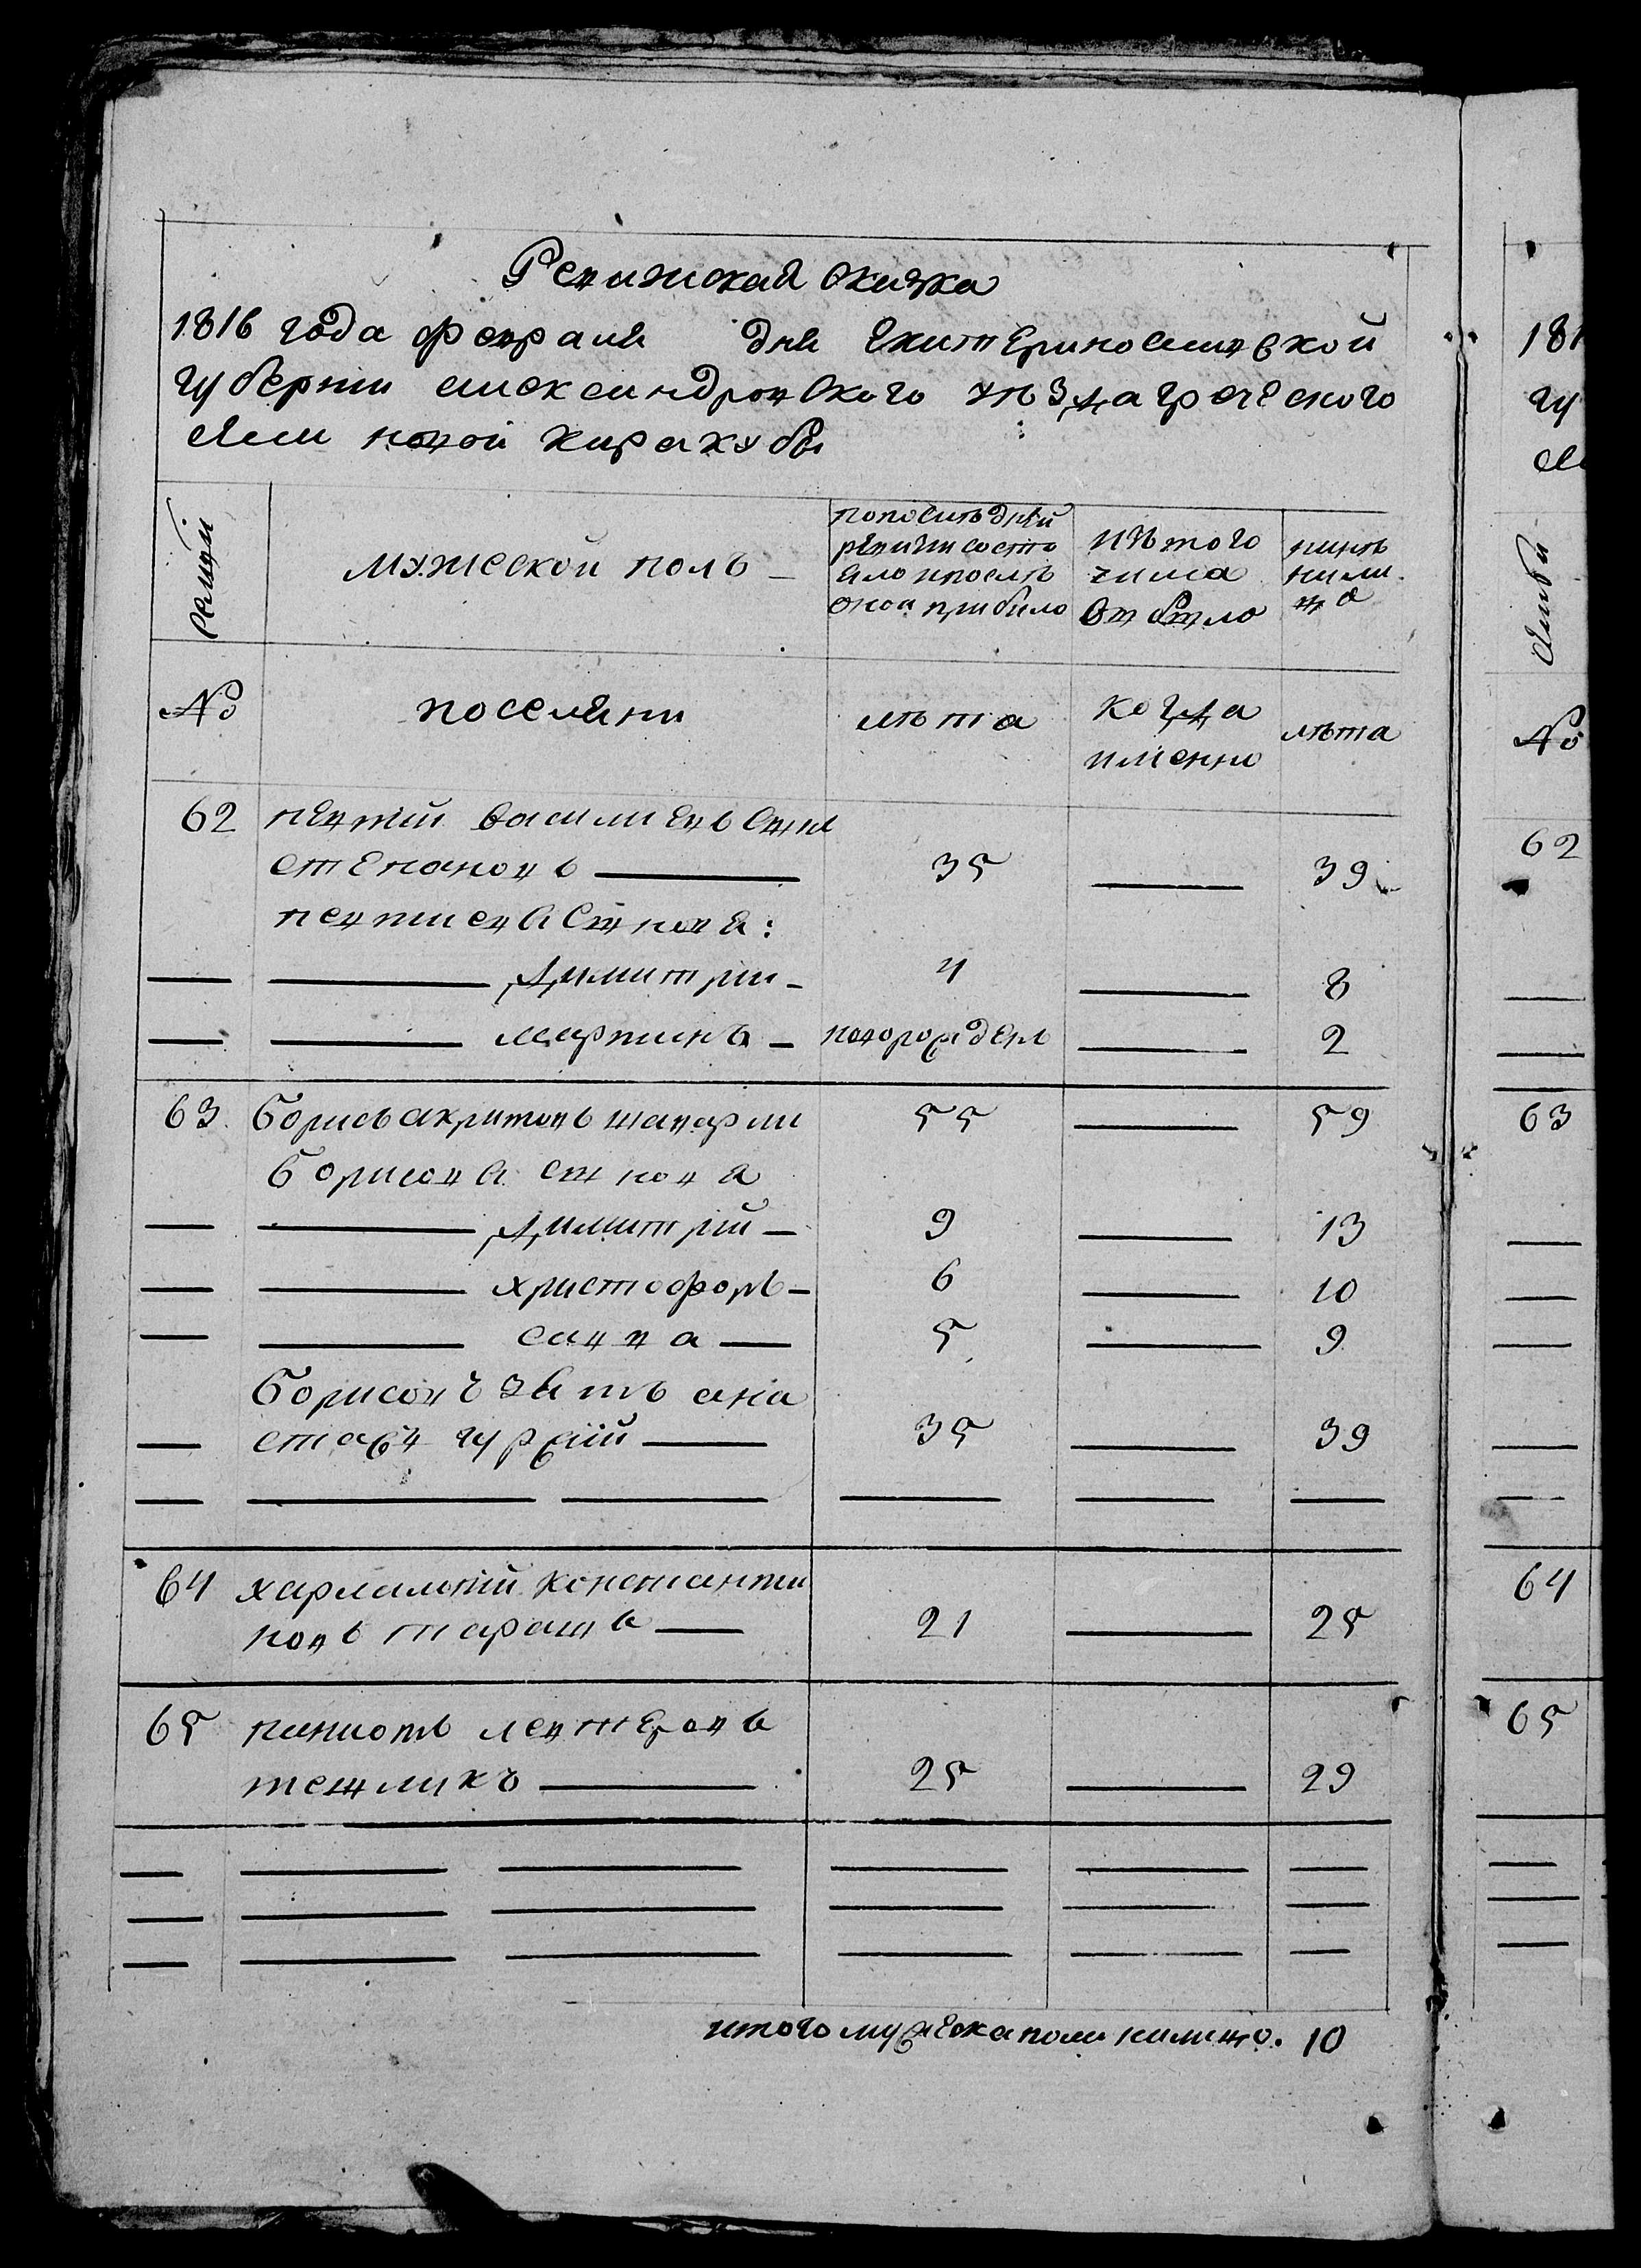 Ревижская скаска
1816 года февраля дня екатериносла​вской
губернии александровского уѣзда греческого
села новой каракубы
семьи
мужеской полъ
попослѣдней
ревизии состо
яло ипослѣ
оной прибыло
изъ того
числа
выбыло
нынѣ
нали
цо
№
поселяни
лѣта
когда
именно
лѣта
62 пентѣй василиевъ сынъ
степановъ 35 39
пентиева сыновя:
димитри 4 8
мартинъ новорожденъ 2
63 борисъ акритовъ шапарли 55 59
борисова сынова
димитрій 9 13
христофоръ 6 10
савва 5 9
борисовъ зять ана
стасъ гуржій 35 39
64 харлампій константи
новъ тарашъ 21 25
65 паниотъ левтеровъ
тешликъ 25 29
итого мужеска пола налицо. 10
181
гу
се
семьи
№
62
63
64
65